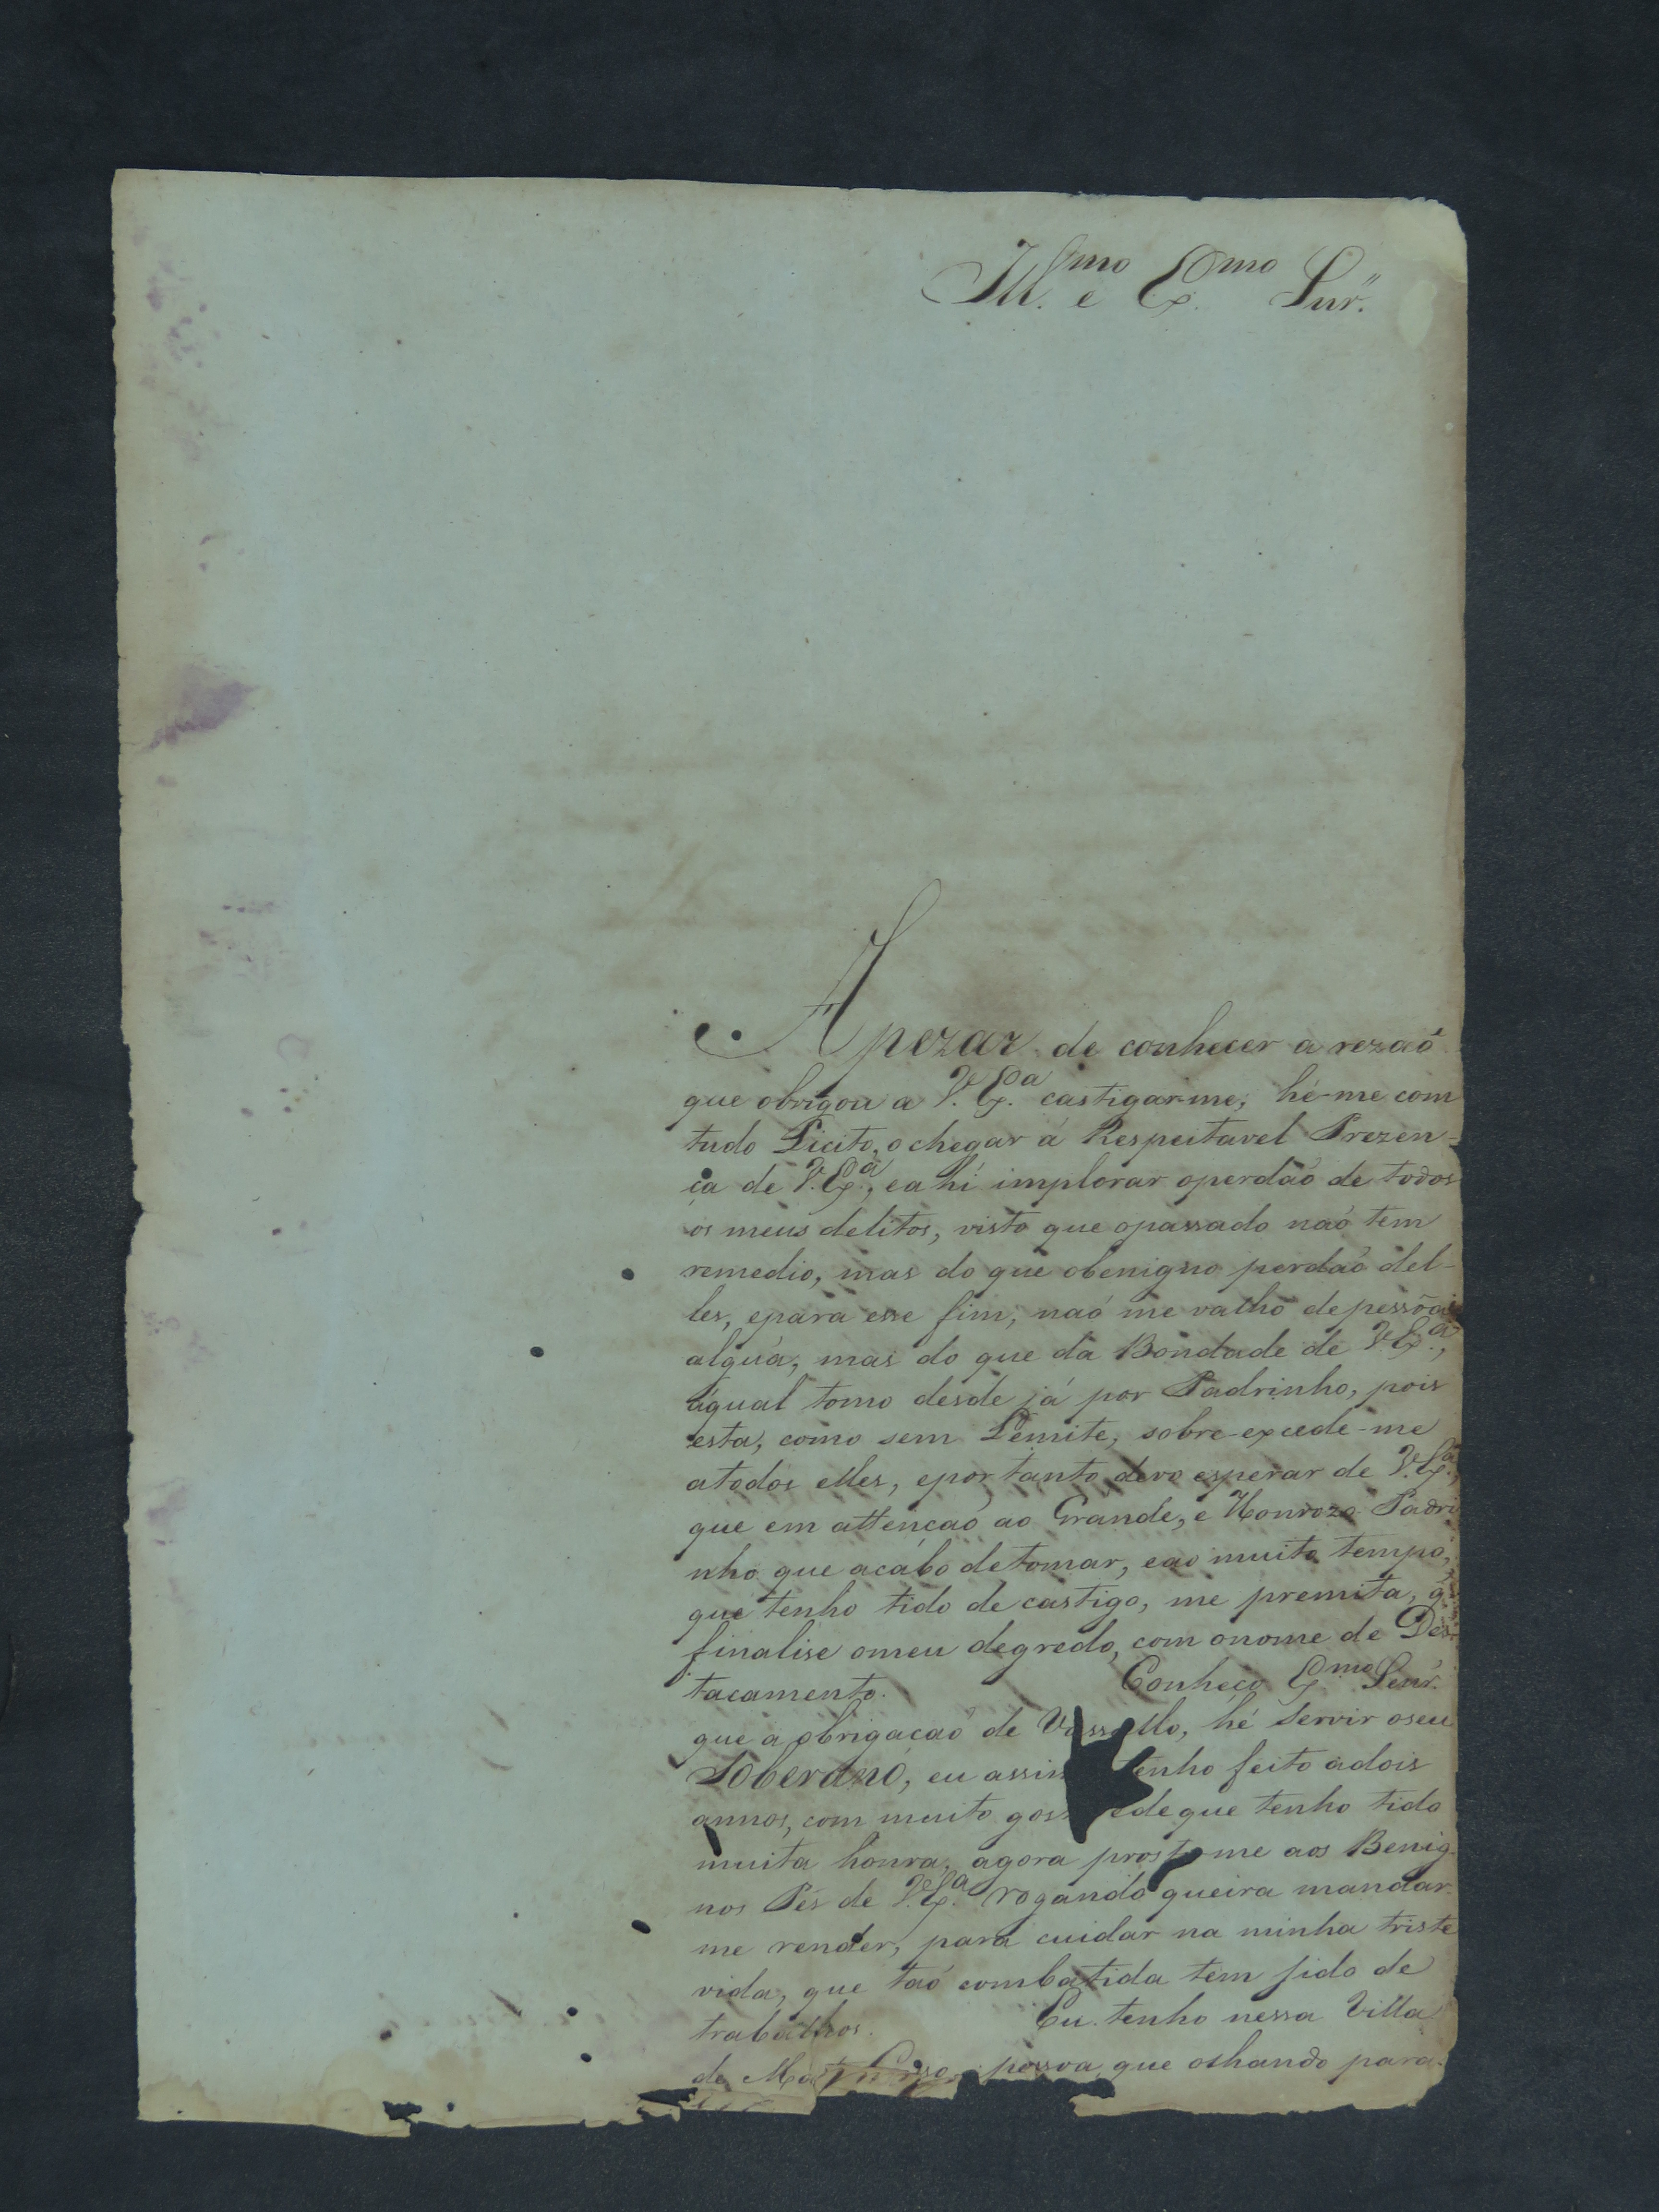 Ill.mo e Ex.mo Snr.
Apezar de conhecer a rezaõ
que obrigou a V. Ex.a castigar-me, hé-me com
tudo Licito, o chegar á Respeitavel Prezen-
ça de V. Ex.a, e ahi implorar operdaõ de todos
os meus delitos, visto que opassado naõ tem
remedio, mas do que obenigno perdaõ del-
les, epara esse fim, naõ me valho de pessõa
algúa, mas do que da Bondade de V. Ex.a,
áqual tomo desde já por Padrinho, pois
esta, como sem Lemite, sobre-excede-me
atodos elles, eportanto devo esperar de V. Ex.a,
que em attençaõ ao Grande, e Honrozo Padri
nho que acabo detomar, eao muito tempo,
que tenho tido de castigo, me premita, q
finalise omeu degredo, com onome de Des-
tacamento. Conheço Ex.mo Senr.
que a obrigaçaõ de Vassallo, hé Servir oseu
Soberano, eu assim tenho feito adois
annos, com muito gos edeque tenho tido
muita honra, agora prosto-me aos Benig-
nos Pés de V. Ex.a rogando queira mandar-
me render, para cuidar na minha triste
vida, que taõ combatida tem sido de
trabalhos. Eu tenho nessa Villa
de pessoa, que olhando para